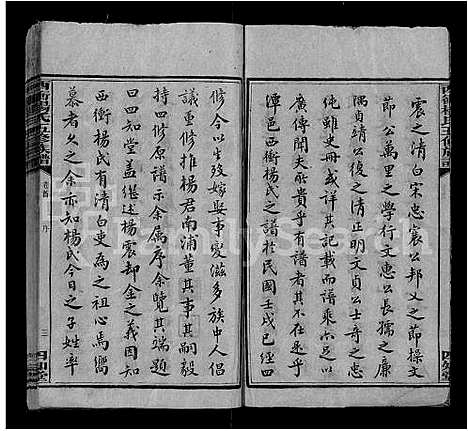 震之清白宋忠襄公邦乂之節操文
節公萬里之學行文惠公長孺之廉
隅貞靖公俊清正明文貞公士奇之忠
純雖史冊或詳其記載而譜乘亦足以
廣傳聞夫氏族貴乎有譜者其不在斯
西衝楊氏之譜於民國壬戌已經四
修今以生歿嫁娶事變滋多族中人倡
議重修推楊君南浦董其事其嗣毅
修近原譜示余属序余覽其端題
曰四知堂蓋繼述楊震却金之義因知
西衝楊氏有清白吏為之祖心焉嚮
慕者久之余亦知楊氏今日之子姓率
西衝楊氏五修族譜
卷首 序
三
四知堂
FamilySearch